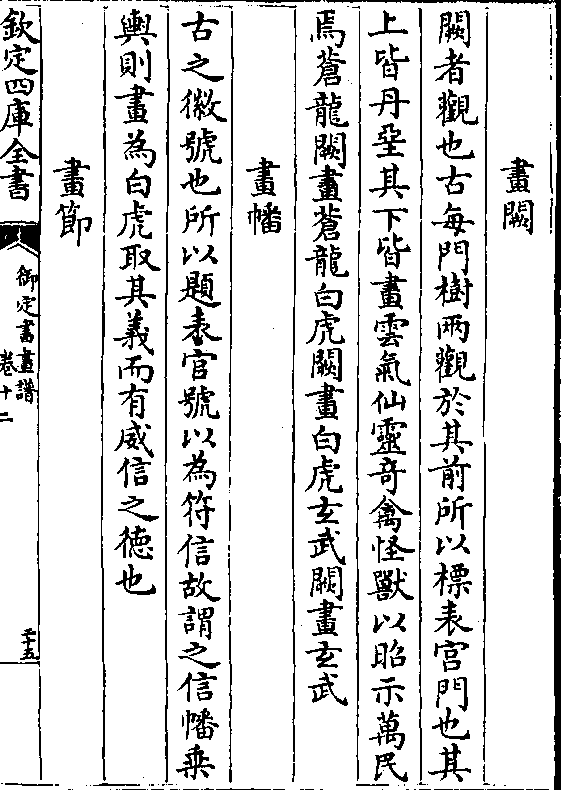 畫闕
闕者觀也古每門樹兩觀於其前所以標表宮門也其
上皆丹堊其下皆畫雲氣仙靈竒禽怪獸以昭示萬民
焉蒼龍闕畫蒼龍白虎闕畫白虎玄武闕畫玄武
畫幡
古之徽號也所以題表官號以為符信故謂之信幡乗
輿則畫為白虎取其義而有威信之德也
畫節
欽定四庫全書
御定書畫譜
卷十二
二十五